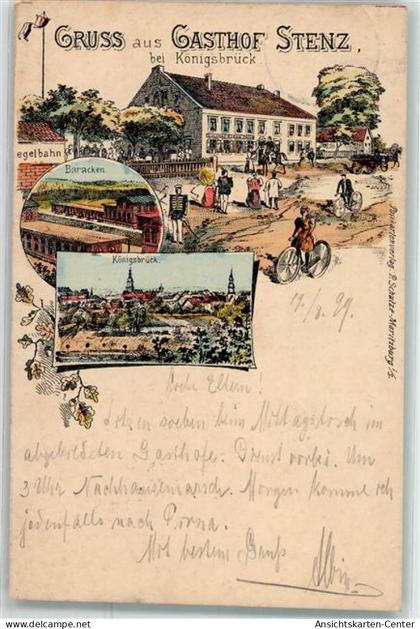 GRUSS aus GASTHOF STENZ,
bei Königsbrück
egelbahn
Baracken.
Königsbrück.
17/8. 99.
Liebe Eltern!
Sitzen soeben beim Mittagstisch im
abgebildeten Gasthofe. Dienst vorbei. Um
3 Uhr Nachhausemarsch. Morgen komme ich
jedenfalls nach Pirna.
Mit bestem Gruß
Albin.
Ansichtskarten-Center
www.delcampe.net Ansichtskarten-Center